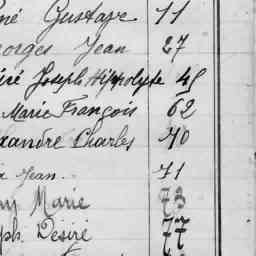 né Gustave 11
orges Jean 27
éré Joseph Hippolyte 45
Marie François 62
xandre Charles 70
Jean. 71
ny Marie 73
ph Désiré 77